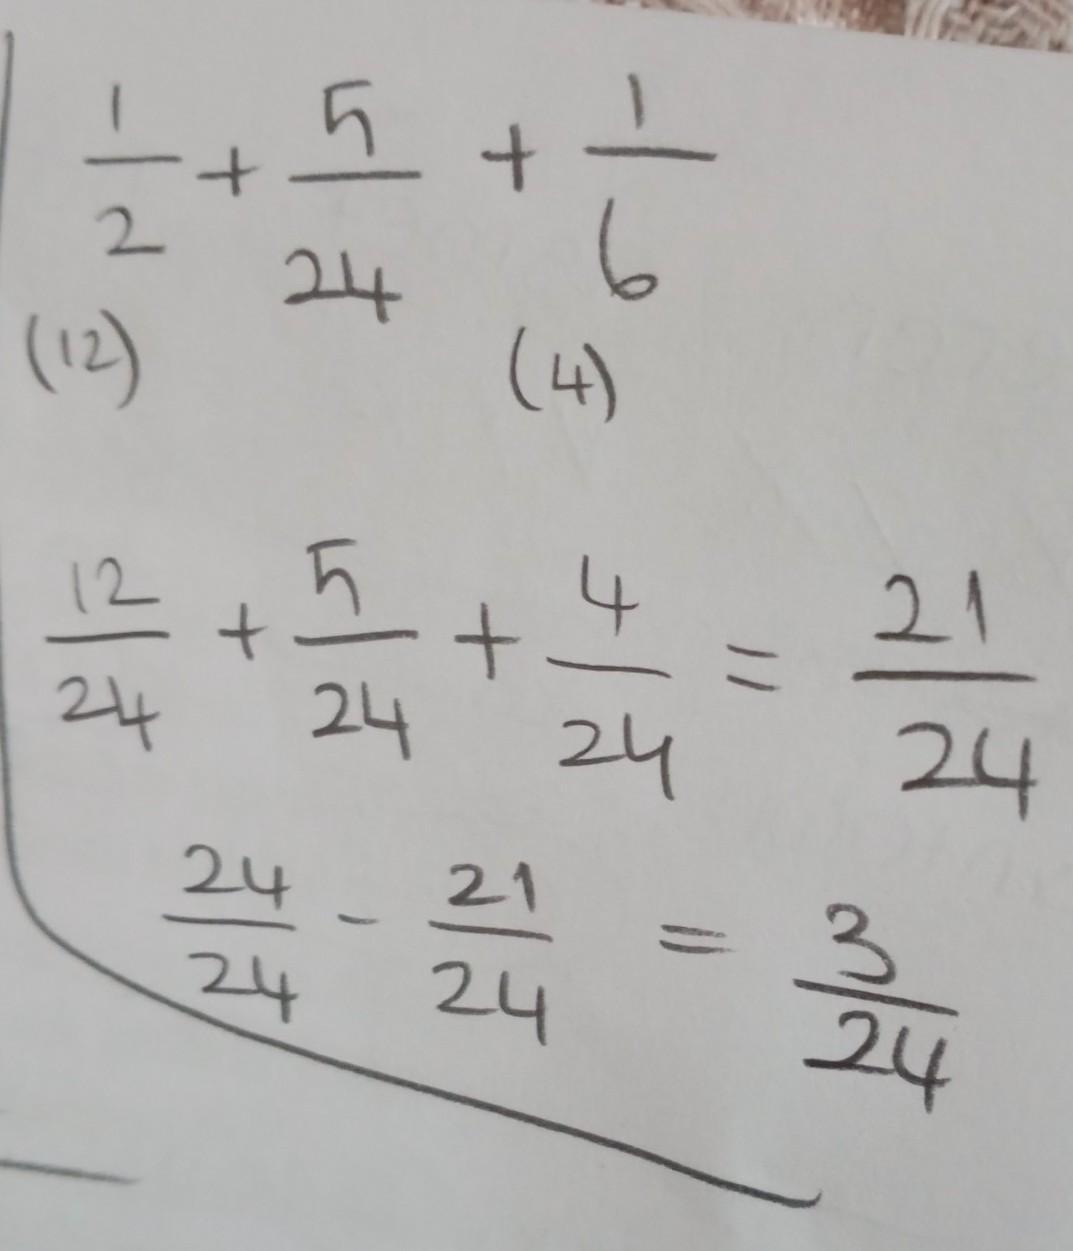 1/2 + 5/24 + 1/6
(12) (4)
12/24 + 5/24 + 4/24 = 21/24
24/24 - 21/24 = 3/24